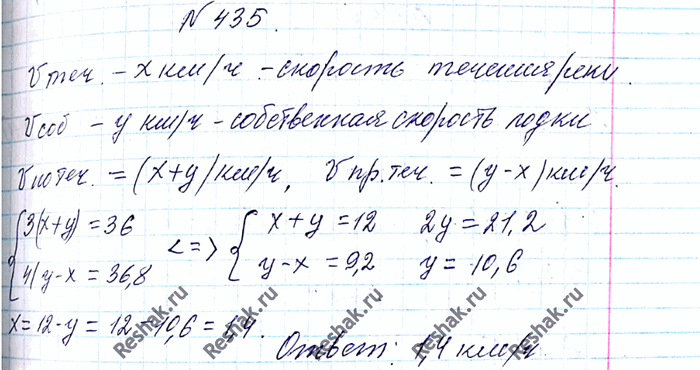 № 435.
Vтеч. – x км/ч – скорость течения реки.
Vсоб – y км/ч – собственная скорость лодки
Vпотеч. = (x+y) км/ч, Vпр.теч. = (y-x) км/ч.
{3(x+y) = 36 <=> {x+y = 12 2y = 21,2
4(y-x = 36,8 y-x = 9,2 y = 10,6
x = 12-y = 12-10,6 = 1,4.
Ответ: 1,4 км/ч
Reshak.ru Reshak.ru Reshak.ru Reshak.ru Reshak.ru